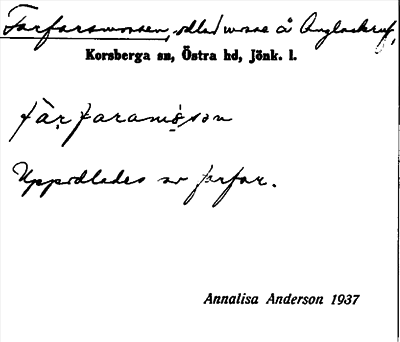 Farfarsmossen, odlad mosse å Änglaskruf,
Korsberga sn, Östra hd, Jönk. l.
fàrfaramósən
Uppodlades av farfar.
Annalisa Anderson 1937